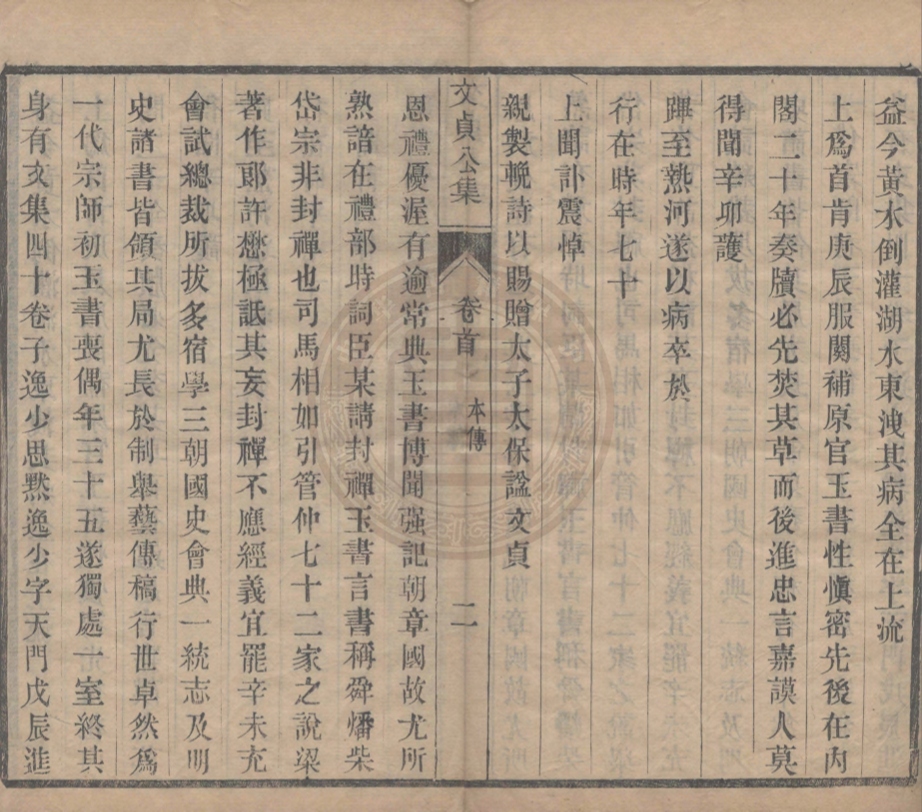 益今黄水倒灌湖水東洩其病全在上流
上爲首肯庚辰服闋補原官玉書性愼密先後在內
閣二十年奏牘必先焚其草而後進忠言嘉謨人莫
得聞辛卯䕶
蹕至熱河遂以病卒於
行在時年七十
上聞訃震悼
親製輓詩以賜贈太子太保諡文貞
文貞公集 卷首 本傳 二
恩禮優渥有逾常典玉書博聞强記朝章國故尤所
熟諳在禮部時詞臣某請封禪玉書言書稱舜燔柴
岱宗非封禪也司馬相如引管仲七十二家之說梁
著作郞許懋極詆其妄封禪不應經義宜罷辛未充
會試總裁所拔多宿學三朝國史會典一統志及明
史諸書皆領其局尤長於制舉藝傳稿行世卓然爲
一代宗師初玉書喪偶年三十五遂獨處一室終其
身有文集四十卷子逸少思默逸少字天門戊辰進